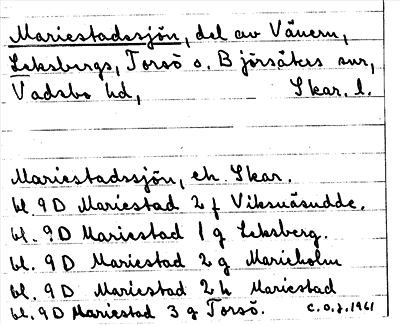 Mariestadssjön, del av Vänern,
Leksbergs, Torsö o. Björsäters snr,
Vadsbo hd, Skar. l.
Mariestadssjön, ek. Skar.
bl. 9D Mariestad 2 f Viksnäsudde.
bl. 9D Mariestad 1 g Leksberg.
bl. 9D Mariestad 2 g Marieholm
bl. 9D Mariestad 2 h Mariestad
bl. 9D Mariestad 3 g Torsö. C.O.J. 1961